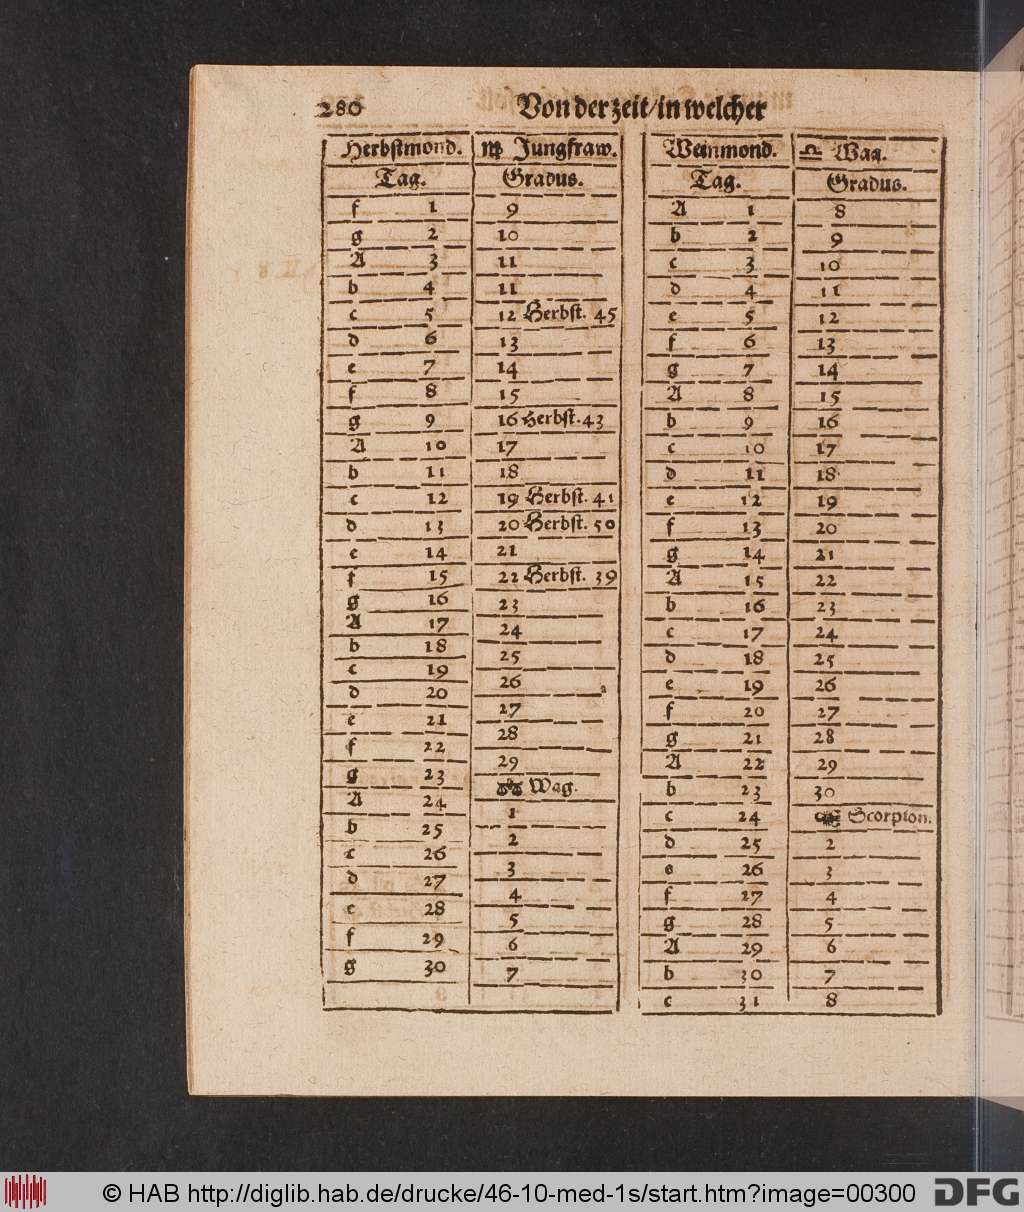 280 Von der zeit/in welcher
Herbstmond. ♍ Jungfraw.
Tag. Gradus.
f 1 9
g 2 10
A 3 11
b 4 11
c 5 12 Herbst. 45
d 6 13
e 7 14
f 8 15
g 9 16 Herbst. 43
A 10 17
b 11 18
c 12 19 Herbst. 41
d 13 20 Herbst. 50
e 14 21
f 15 22 Herbst. 39
g 16 23
A 17 24
b 18 25
c 19 26
d 20 27
e 21 28
f 22 29
g 23 ♎ Wag.
A 24 1
b 25 2
c 26 3
d 27 4
e 28 5
f 29 6
g 30 7
Weinmond. ♎ Wag.
Tag. Gradus.
A 1 8
b 2 9
c 3 10
d 4 11
e 5 12
f 6 13
g 7 14
A 8 15
b 9 16
c 10 17
d 11 18
e 12 19
f 13 20
g 14 21
A 15 22
b 16 23
c 17 24
d 18 25
e 19 26
f 20 27
g 21 28
A 22 29
b 23 30
c 24 ♏ Scorpion.
d 25 2
e 26 3
f 27 4
g 28 5
A 29 6
b 30 7
c 31 8
© HAB http://diglib.hab.de/drucke/46-10-med-1s/start.htm?image=00300 DFG